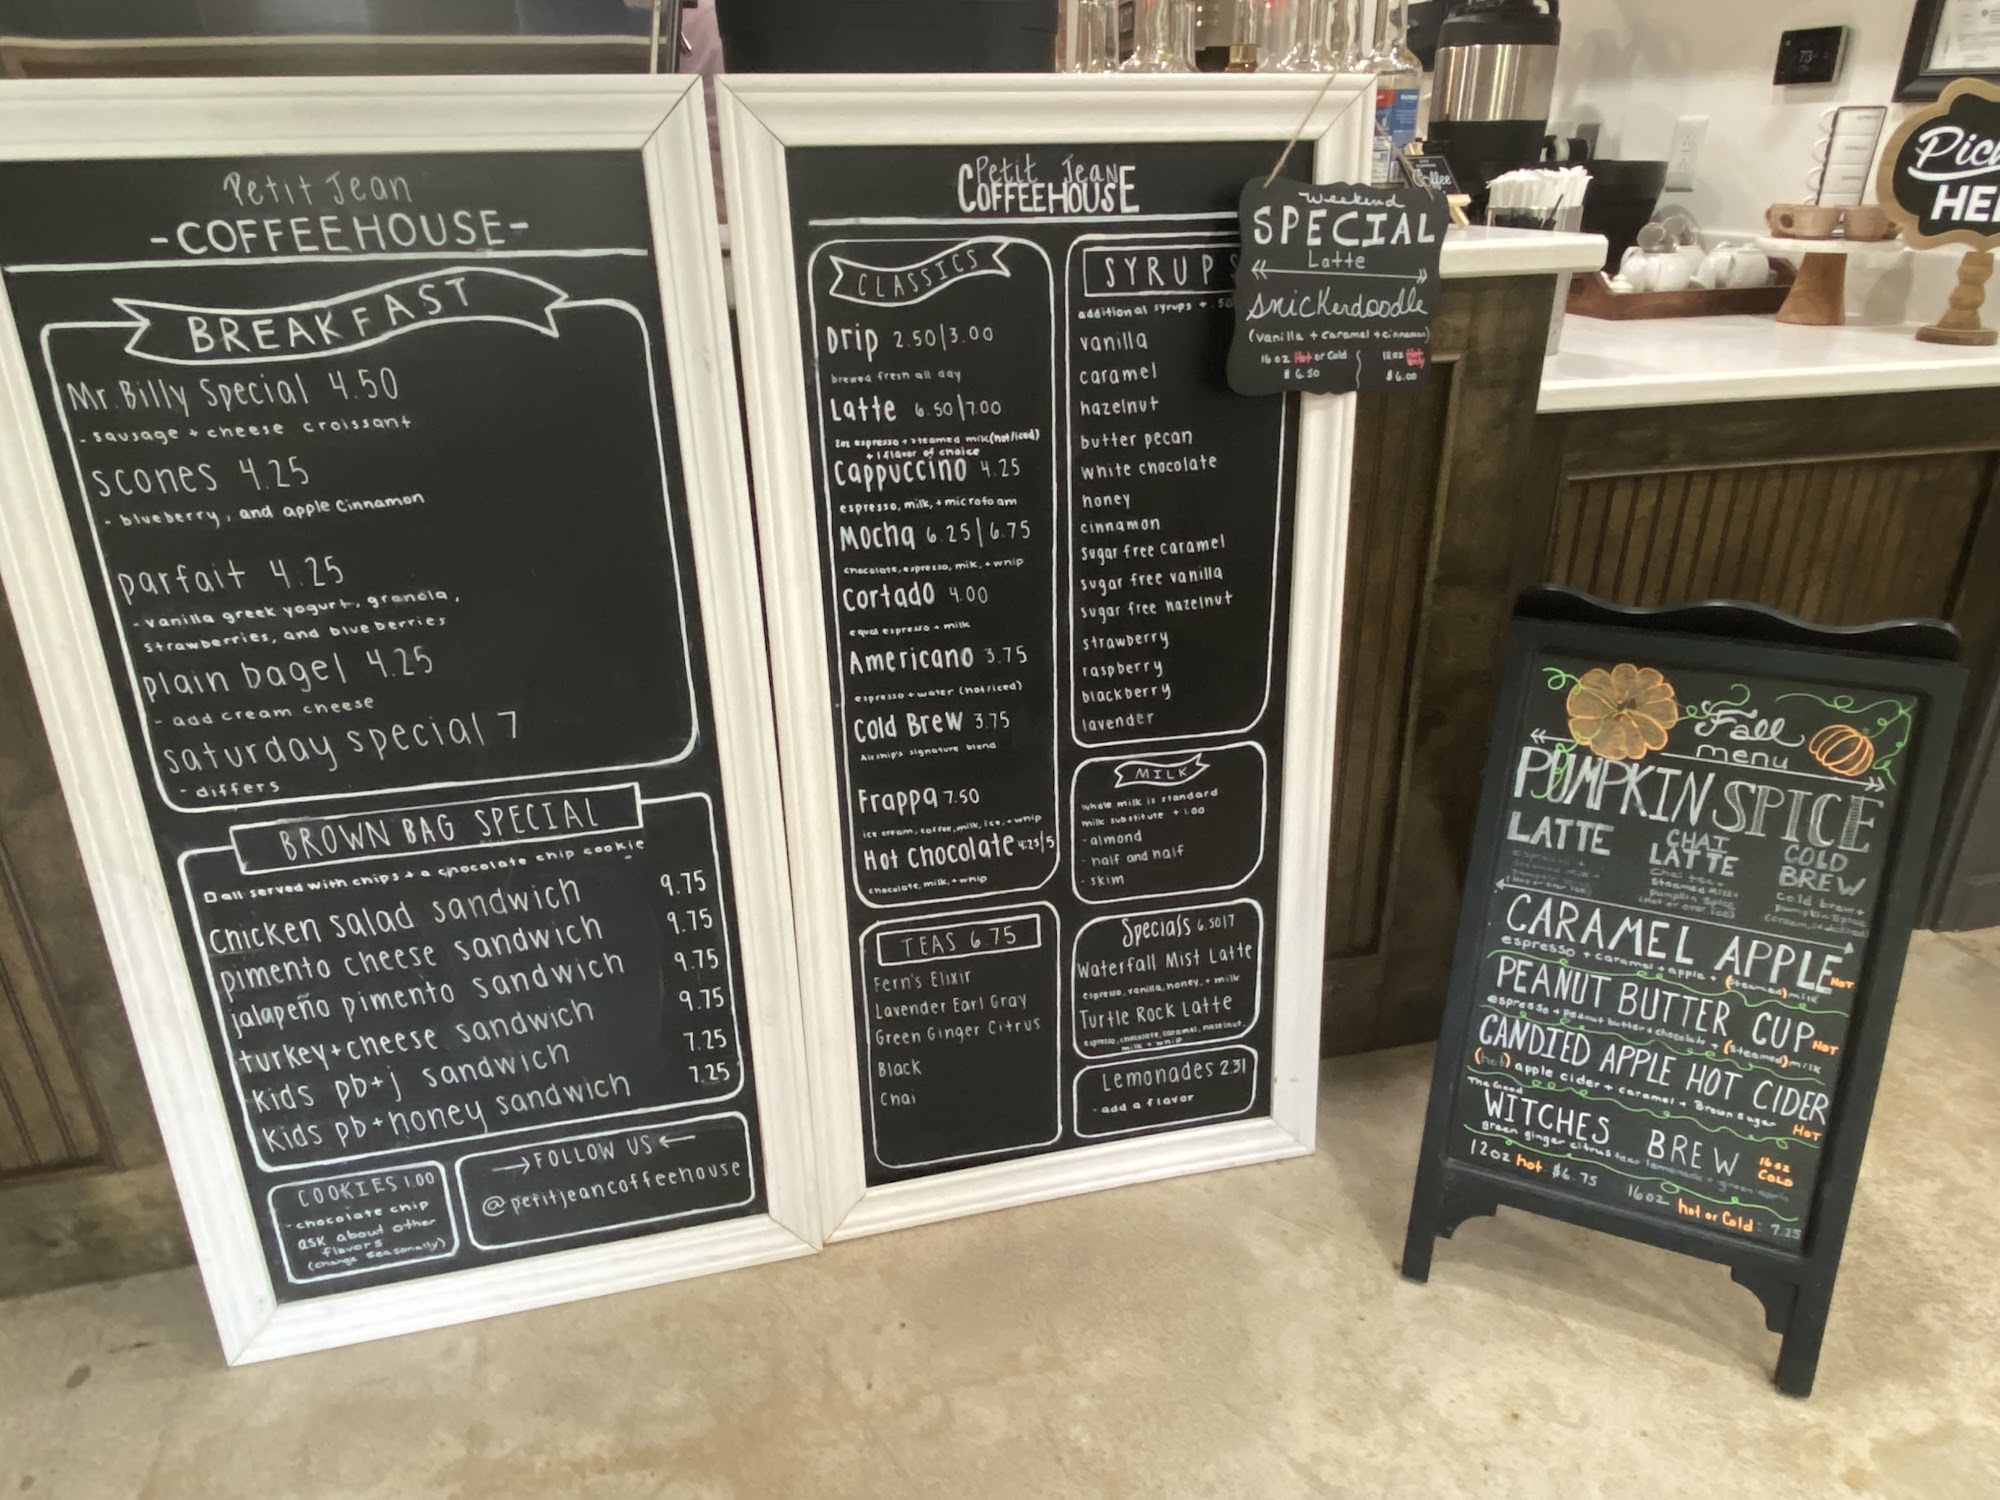 Petit Jean
-COFFEEHOUSE-
BREAKFAST
Mr. Billy Special 4.50
- sausage + cheese croissant
scones 4.25
- blueberry, and apple cinnamon
parfait 4.25
- vanilla greek yogurt, granola,
strawberries, and blueberries
plain bagel 4.25
- add cream cheese
saturday special 7
- differs
BROWN BAG SPECIAL
all served with chips + a chocolate chip cookie
chicken salad sandwich 9.75
pimento cheese sandwich 9.75
jalapeño pimento sandwich 9.75
turkey+cheese sandwich 9.75
kids pb+j sandwich 7.25
kids pb+honey sandwich 7.25
COOKIES 1.00
- chocolate chip
ask about other
flavors
(change seasonally)
FOLLOW US
@petitjeancoffeehouse
Petit Jean
COFFEEHOUSE
CLASSICS
Drip 2.50/3.00
brewed fresh all day
Latte 6.50/7.00
2oz espresso + steamed milk (hot/iced)
+ 1 flavor of choice
Cappuccino 4.25
espresso, milk, + microfoam
Mocha 6.25/6.75
chocolate, espresso, milk, + whip
Cortado 4.00
equal espresso + milk
Americano 3.75
espresso + water (hot/iced)
Cold Brew 3.75
Airship's signature blend
Frappa 7.50
ice cream, coffee, milk, ice, + whip
Hot Chocolate 4.25/5
chocolate, milk, + whip
TEAS 6.75
Fern's Elixir
Lavender Earl Gray
Green Ginger Citrus
Black
Chai
SYRUPS
additional syrups + .50
vanilla
caramel
hazelnut
butter pecan
white chocolate
honey
cinnamon
sugar free caramel
sugar free vanilla
sugar free hazelnut
strawberry
raspberry
blackberry
lavender
MILK
whole milk is standard
milk substitute + 1.00
- almond
- half and half
- skim
Specials 6.50/7
Waterfall Mist Latte
espresso, vanilla, honey, + milk
Turtle Rock Latte
espresso, chocolate, caramel, hazelnut,
milk + whip
Lemonades 2.31
- add a flavor
Weekend
SPECIAL
Latte
snickerdoodle
(vanilla + caramel + cinnamon)
16 oz Hot or Cold
$ 6.50
12 oz Hot only
$ 6.00
Coffee
73
Pick
HE
Fall
menu
PUMPKIN SPICE
LATTE
CHAI
LATTE
chai tea +
steamed milk +
pumpkin spice
(hot or over ice)
COLD
BREW
cold brew +
pumpkin spice
CARAMEL APPLE HOT
espresso + caramel + apple + (steamed) milk
PEANUT BUTTER CUP HOT
espresso + peanut butter + chocolate + (steamed) milk
CANDIED APPLE HOT CIDER
(hot) apple cider + caramel + Brown sugar HOT
The Good
WITCHES BREW 16 oz COLD
green ginger citrus tea + lemonade + green apple
12oz hot $6.75
16oz hot or Cold: 7.25